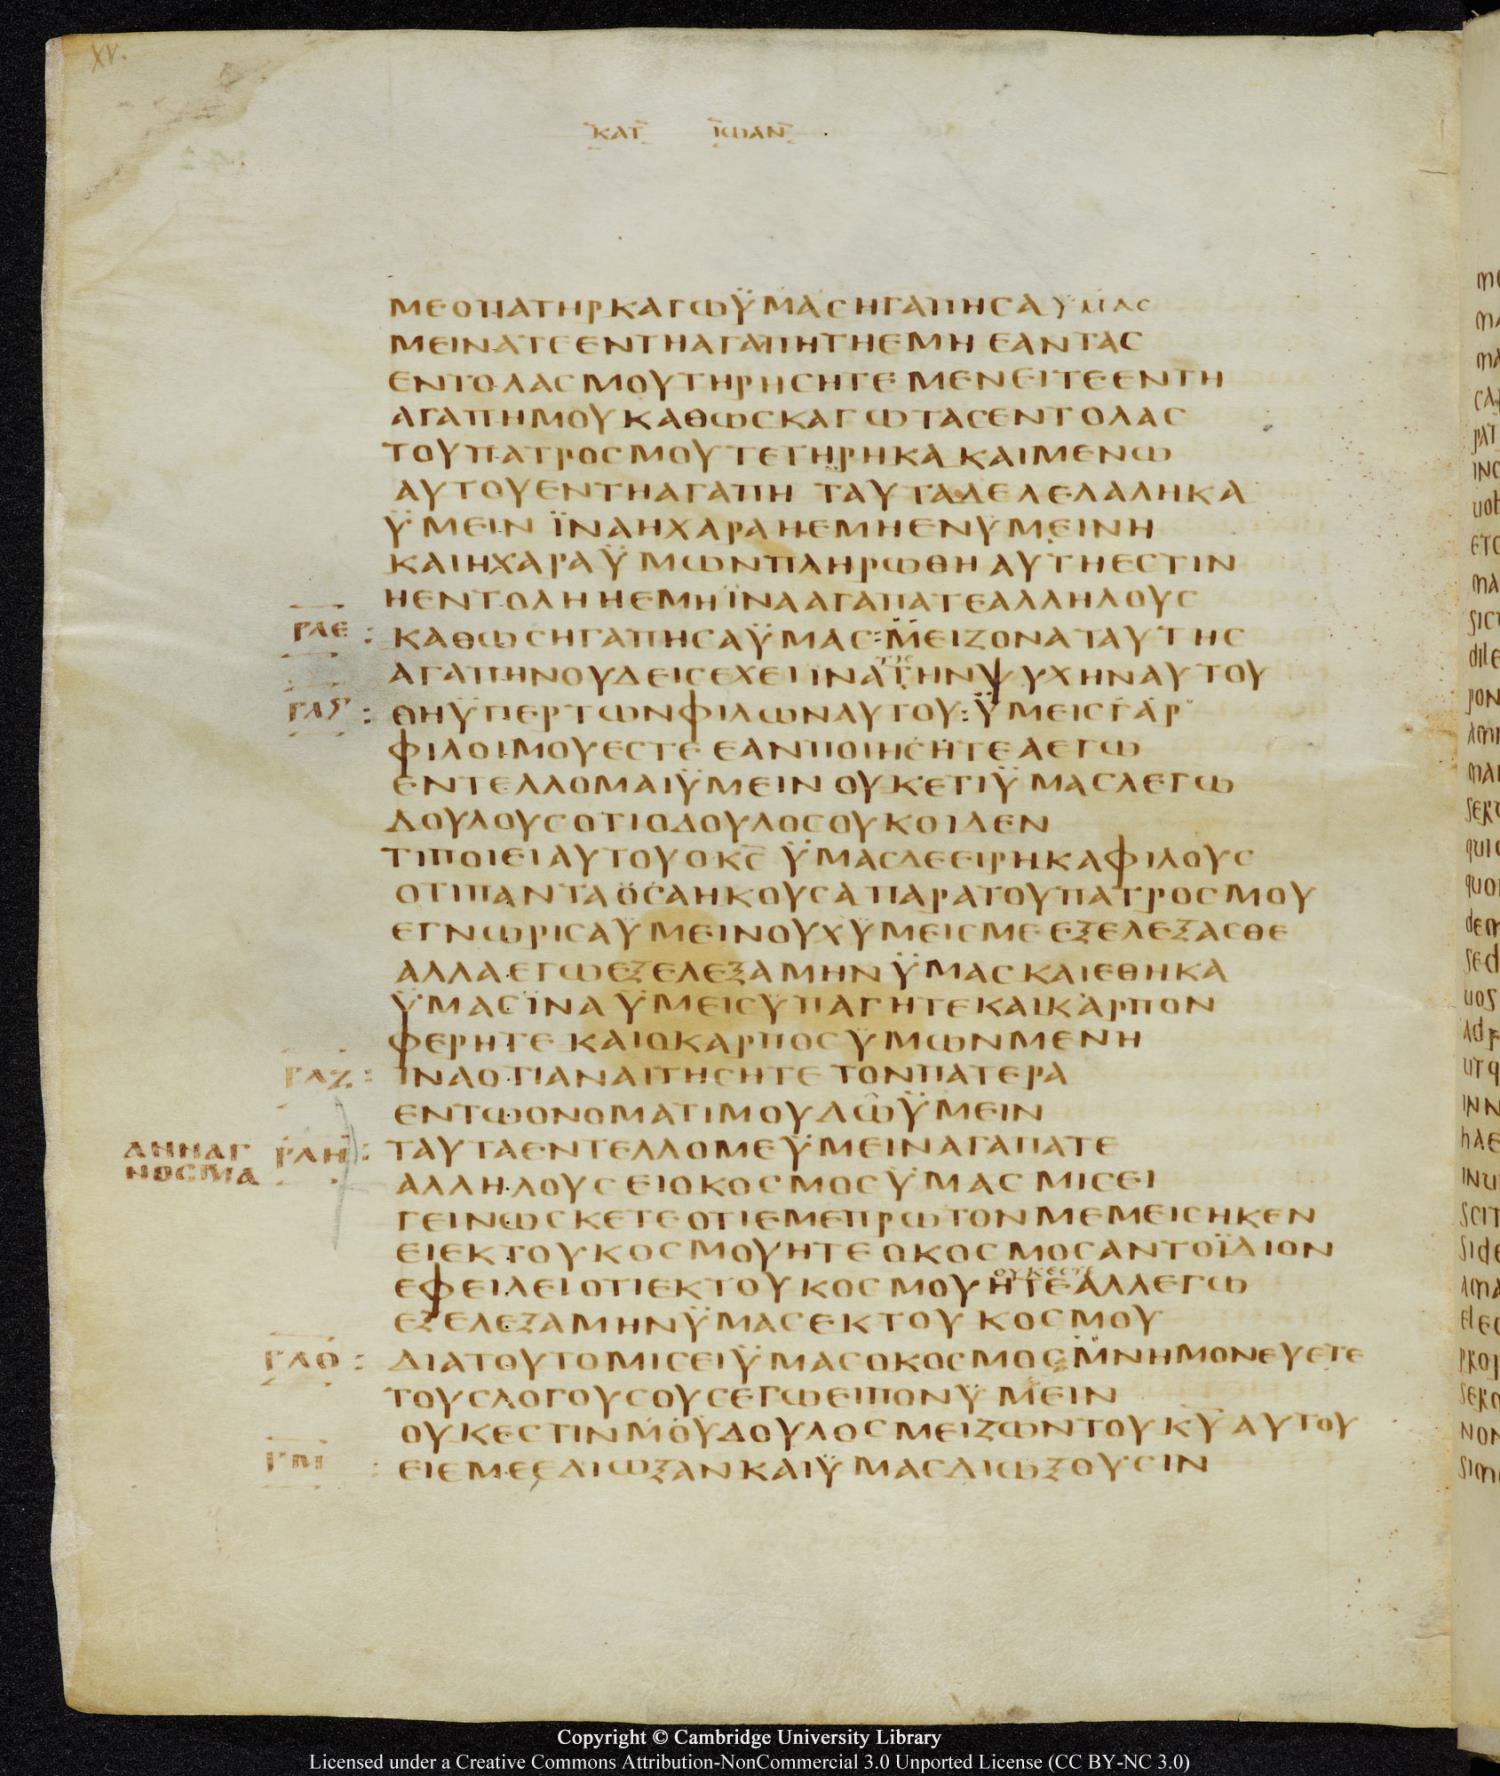 XV.
ΚΑΤ ΙΩΑΝ
ΜΕΟΠΑΤΗΡΚΑΓΩΫΜΑСΗΓΑΠΗСΑΥΜΑС
ΜΕΙΝΑΤΕΕΝΤΗΑΓΑΠΗΤΗΕΜΗ ΕΑΝΤΑС
ΕΝΤΟΛΑСΜΟΥΤΗΡΗСΗΤΕ ΜΕΝΕΙΤΕΕΝΤΗ
ΑΓΑΠΗΜΟΥΚΑΘΩСΚΑΓΩΤΑСΕΝΤΟΛΑС
ΤΟΥΠΑΤΡΟСΜΟΥΤΕΤΗΡΗΚΑ ΚΑΙΜΕΝΩ
ΑΥΤΟΥΕΝΤΗΑΓΑΠΗ ΤΑΥΤΑΔΕΛΕΛΑΛΗΚΑ
ΫΜΕΙΝ ΪΝΑΗΧΑΡΑΗΕΜΗΕΝΫΜΕΙΝΗ
ΚΑΙΗΧΑΡΑΫΜΩΝΠΛΗΡΩΘΗ ΑΥΤΗΕСΤΙΝ
ΗΕΝΤΟΛΗΗΕΜΗΪΝΑΑΓΑΠΑΤΕΑΛΛΗΛΟΥС
ΡΛΕ : ΚΑΘΩСΗΓΑΠΗСΑΫΜΑС:ΜΕΙΖΟΝΑΤΑΥΤΗС
ΑΓΑΠΗΝΟΥΔΕΙСΕΧΕΙΙΝΑΤΗΝΨΥΧΗΝΑΥΤΟΥ
ΡΛϚ : ΘΗΫΠΕΡΤΩΝΦΙΛΩΝΑΥΤΟΥ:ΫΜΕΙСΓΑΡ
ΦΙΛΟΙΜΟΥΕСΤΕ ΕΑΝΠΟΙΗСΗΤΕΑΕΓΩ
ΕΝΤΕΛΛΟΜΑΙΫΜΕΙΝ ΟΥΚΕΤΙΫΜΑСΛΕΓΩ
ΔΟΥΛΟΥСΟΤΙΟΔΟΥΛΟСΟΥΚΟΙΔΕΝ
ΤΙΠΟΙΕΙΑΥΤΟΥΟΚС ΫΜΑСΔΕΕΙΡΗΚΑΦΙΛΟΥС
ΟΤΙΠΑΝΤΑΟСΑΗΚΟΥСΑΠΑΡΑΤΟΥΠΑΤΡΟСΜΟΥ
ΕΓΝΩΡΙСΑΫΜΕΙΝΟΥΧΫΜΕΙСΜΕΕΞΕΛΕΞΑСΘΕ
ΑΛΛΑΕΓΩΕΞΕΛΕΞΑΜΗΝΫΜΑСΚΑΙΕΘΗΚΑ
ΫΜΑСΪΝΑΫΜΕΙСΫΠΑΓΗΤΕΚΑΙΚΑΡΠΟΝ
ΦΕΡΗΤΕ ΚΑΙΟΚΑΡΠΟСΫΜΩΝΜΕΝΗ
ΡΛΖ : ΙΝΑΟΤΙΑΝΑΙΤΗСΗΤΕΤΟΝΠΑΤΕΡΑ
ΕΝΤΩΟΝΟΜΑΤΙΜΟΥΔΩΫΜΕΙΝ
ΑΝΝΑΓΝΟСΜΑ ΡΛΗ : ΤΑΥΤΑΕΝΤΕΛΛΟΜΕΫΜΕΙΝΑΓΑΠΑΤΕ
ΑΛΛΗΛΟΥСΕΙΟΚΟСΜΟСΫΜΑСΜΙСΕΙ
ΓΕΙΝΩСΚΕΤΕΟΤΙΕΜΕΠΡΩΤΟΝΜΕΜΕΙСΗΚΕΝ
ΕΙΕΚΤΟΥΚΟСΜΟΥΗΤΕΟΚΟСΜΟСΑΝΤΟΪΔΙΟΝ
ΟΥΚΕСΤΕ
ΕΦΕΙΛΕΙΟΤΙΕΚΤΟΥΚΟСΜΟΥΗΤΕΑΛΛΕΓΩ
ΕΞΕΛΕΞΑΜΗΝΫΜΑСΕΚΤΟΥΚΟСΜΟΥ
ΡΛΘ : ΔΙΑΤΟΥΤΟΜΙСΕΙΫΜΑСΟΚΟСΜΟСΜΝΗΜΟΝΕΥΕΤΕ
ΤΟΥСΛΟΓΟΥСΟΥСΕΓΩΕΙΠΟΝΫΜΕΙΝ
ΟΥΚΕСΤΙΝΜΟΥΔΟΥΛΟСΜΕΙΖΩΝΤΟΥΚΥΑΥΤΟΥ
ΡΜ : ΕΙΕΜΕΕΔΙΩΞΑΝΚΑΙΫΜΑСΔΙΩΞΟΥСΙΝ
Copyright © Cambridge University Library
Licensed under a Creative Commons Attribution-NonCommercial 3.0 Unported License (CC BY-NC 3.0)